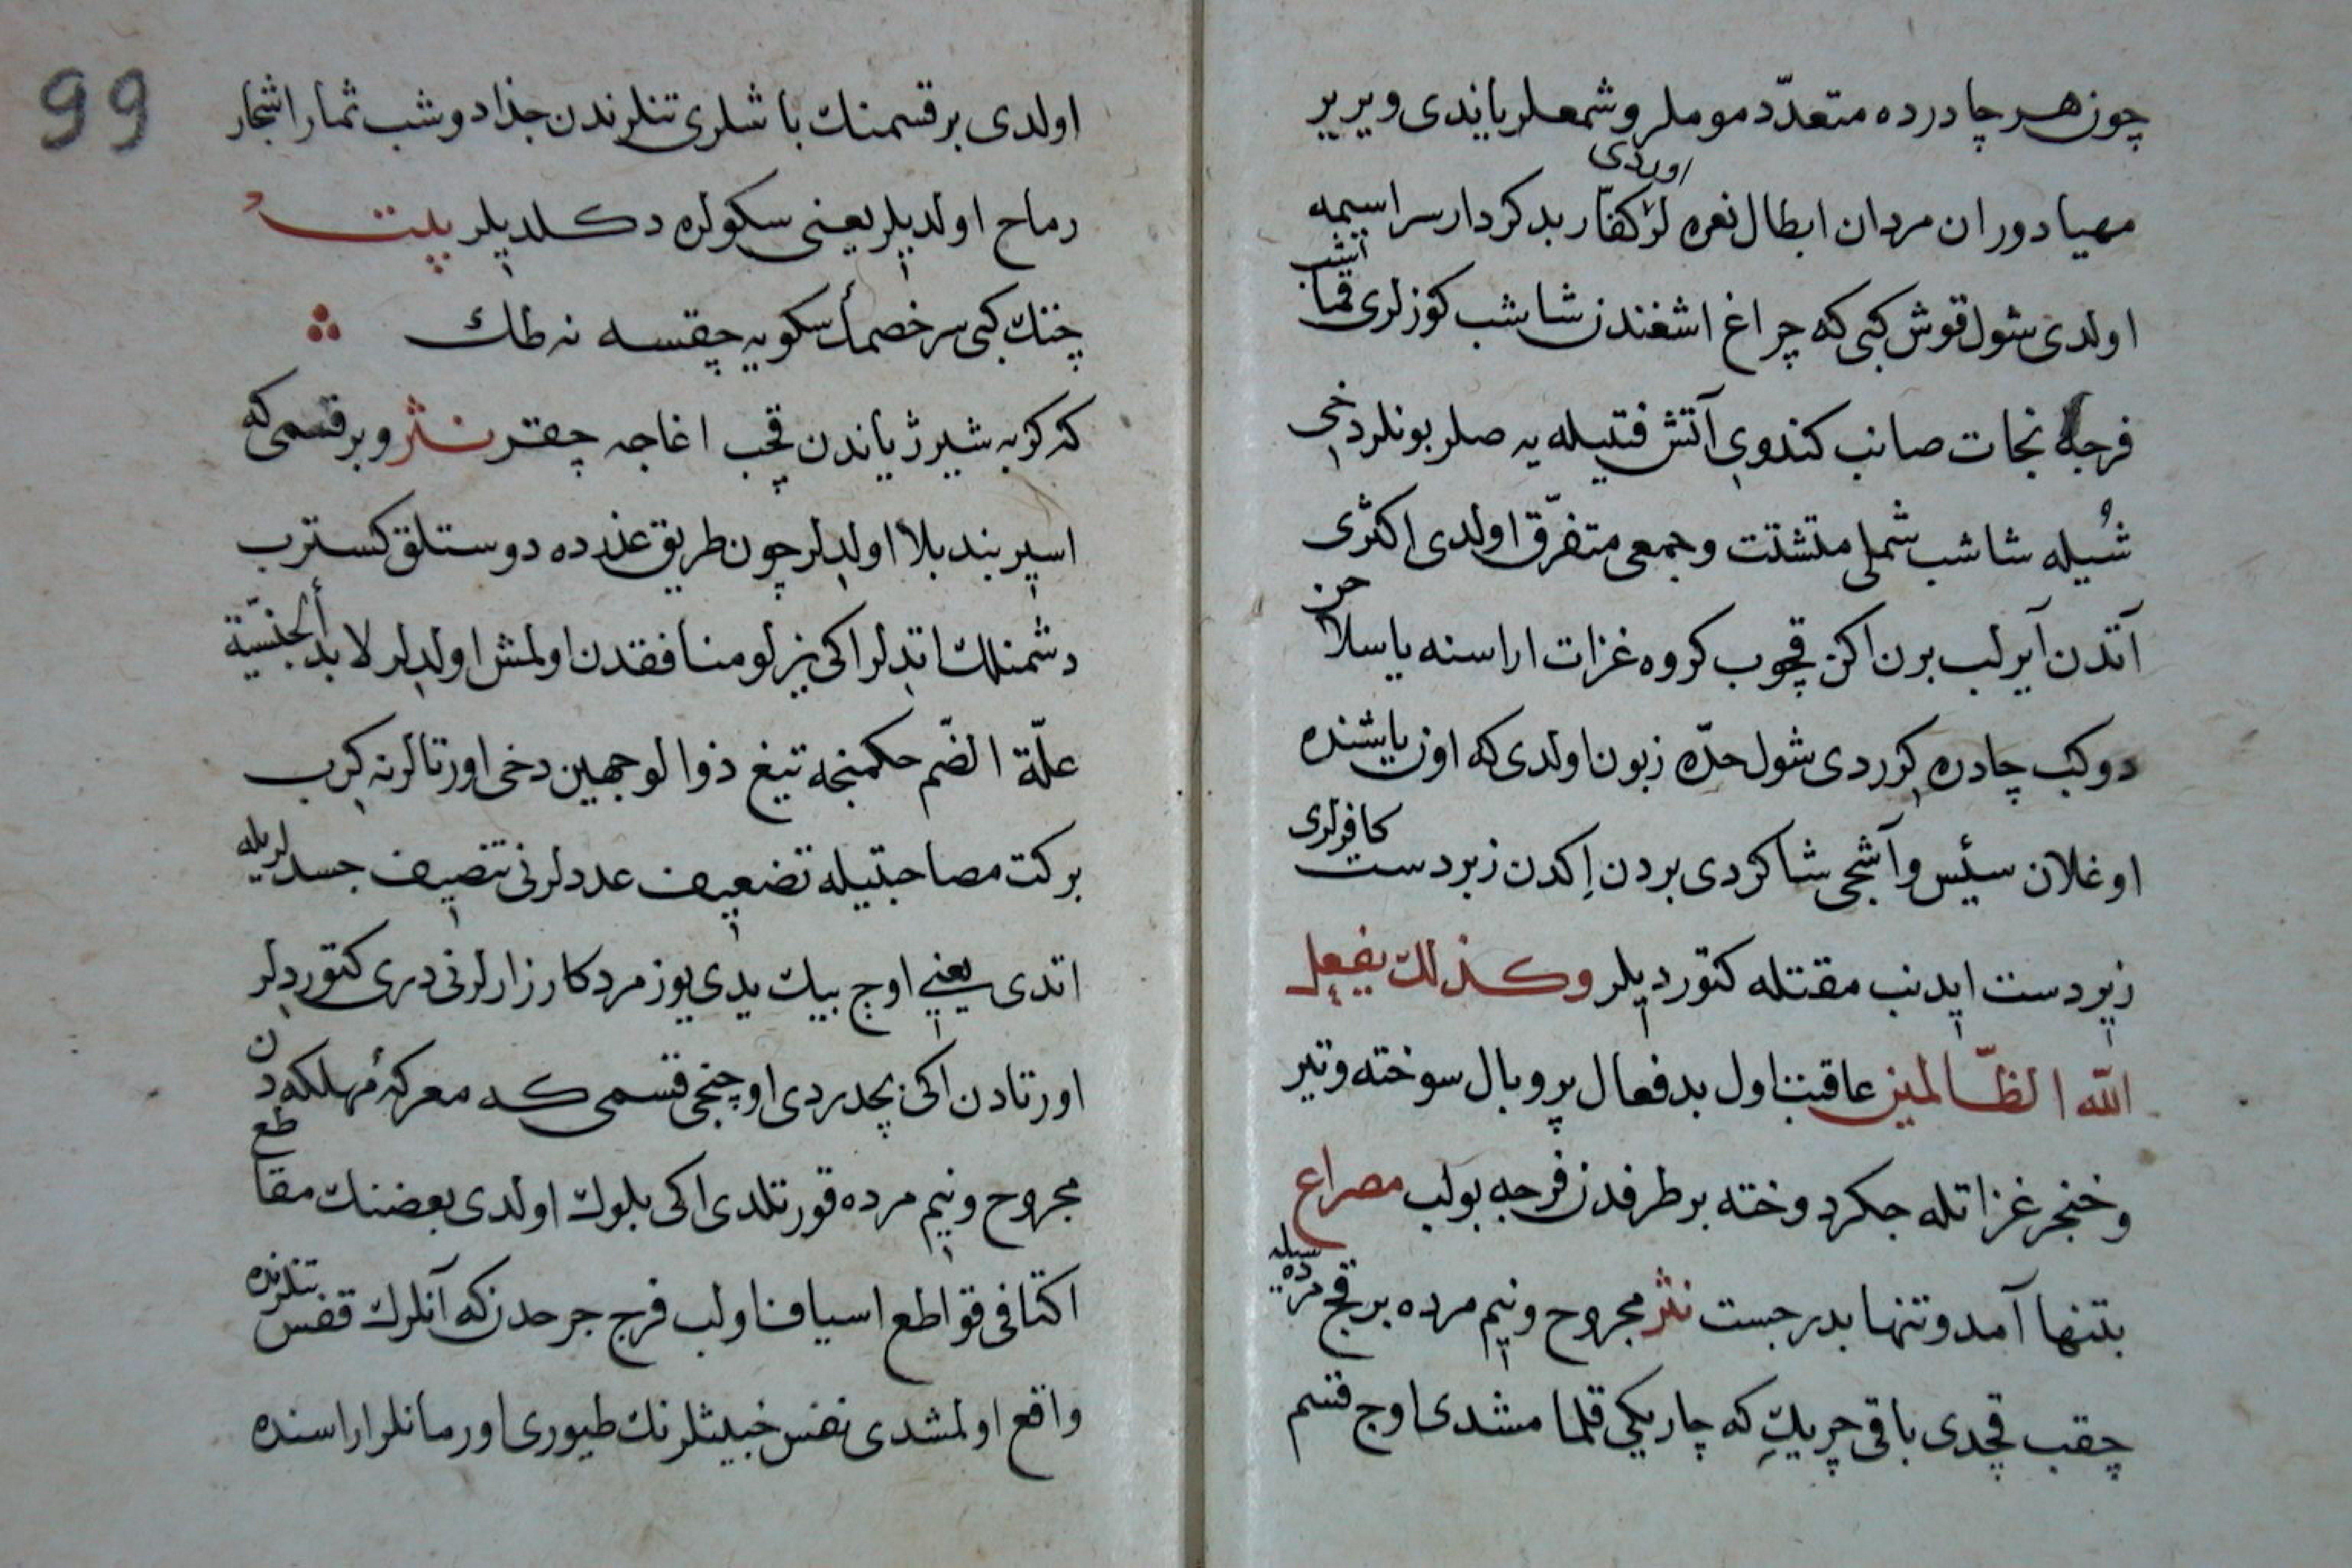 چون هر چادرده متعدّد موملر و شمعلر یاندی و یر یر
مهیا دوران مردان ابطال نعره لر اوردی كفّار بدكردار سراسیمه
اولدی شول قوش كبی كه چراغ اشغندن شاشب كوزلری قماشب
فرجهٔ نجات صانب كندوی آتش فتیله یه صلر بونلر دخی
شُیله شاشب شملی متشتت و جمعی متفرّق اولدی اكثری
آتدن آیرلب برن اكن قچوب كروه غزات اراسنه یاسلاحن
دوكب چادره كررد‌ی شول حدّه زبون اولدی كه اون یاشنده
اوغلان سئیس و آشجی شاكردی بردن اِكدن زبردست كافرلری
زیردست ایدنب مقتله كتوردیلر وكذلك یفعل
الله الظّالمین عاقبت اول بدفعال پر و بال سوخته و تیر
و خنجر غزاتله جكردوخته بر طرفدن فرجه بولب مصراع
بتنها آمد و تنها بدر جست نثر مجروح و نیم مرده بر قچ مرده سیله
چقب قچدی باقی چریك كه چاریكی قلمامشدی اوج قسم
99
اولدی بر قسمنك باشلری تنلرندن جذا دوشب ثمار اشجار
رماح اولدیلر یعنی سكولره دكلدیلر بیت
چتك كبی سر خصمك سكویه چقسه نه طاك
كه كربه شیر ژیاندن قچب اغاجه چقر نثر و بر قسمی كه
اسیر بند بلا اولدلر چون طریق عذرده دوستلق كسترب
دشمنلك اتدلر اكی یزلو منافقدن اولمش اولدلر لابد ألجنسیّة
علّة الضّم حكمنجه تیغ ذو الوجهین دخی اورتالرنه كرب
بركت مصاحبتیله تضعیف عددلرنی تنصیف جسدلریله
اتدی یعنی اوج بیك یدی یوز مرد كارزارلرنی دری كتوردلر
اورتادن اكی بچدردی اوچنجی قسمی كه معركهٔ مهلكه دن
مجروح و نیم مرده قورتلدی اكی بلوك اولدی بعضنك مقاطع
اكتافی قواطع اسیافن اولب فرج جرحدن كه آنلرك قفس تنلرنده
واقع اولمشدی نفس خبیثلرنك طیوری اورمانلر اراسنده